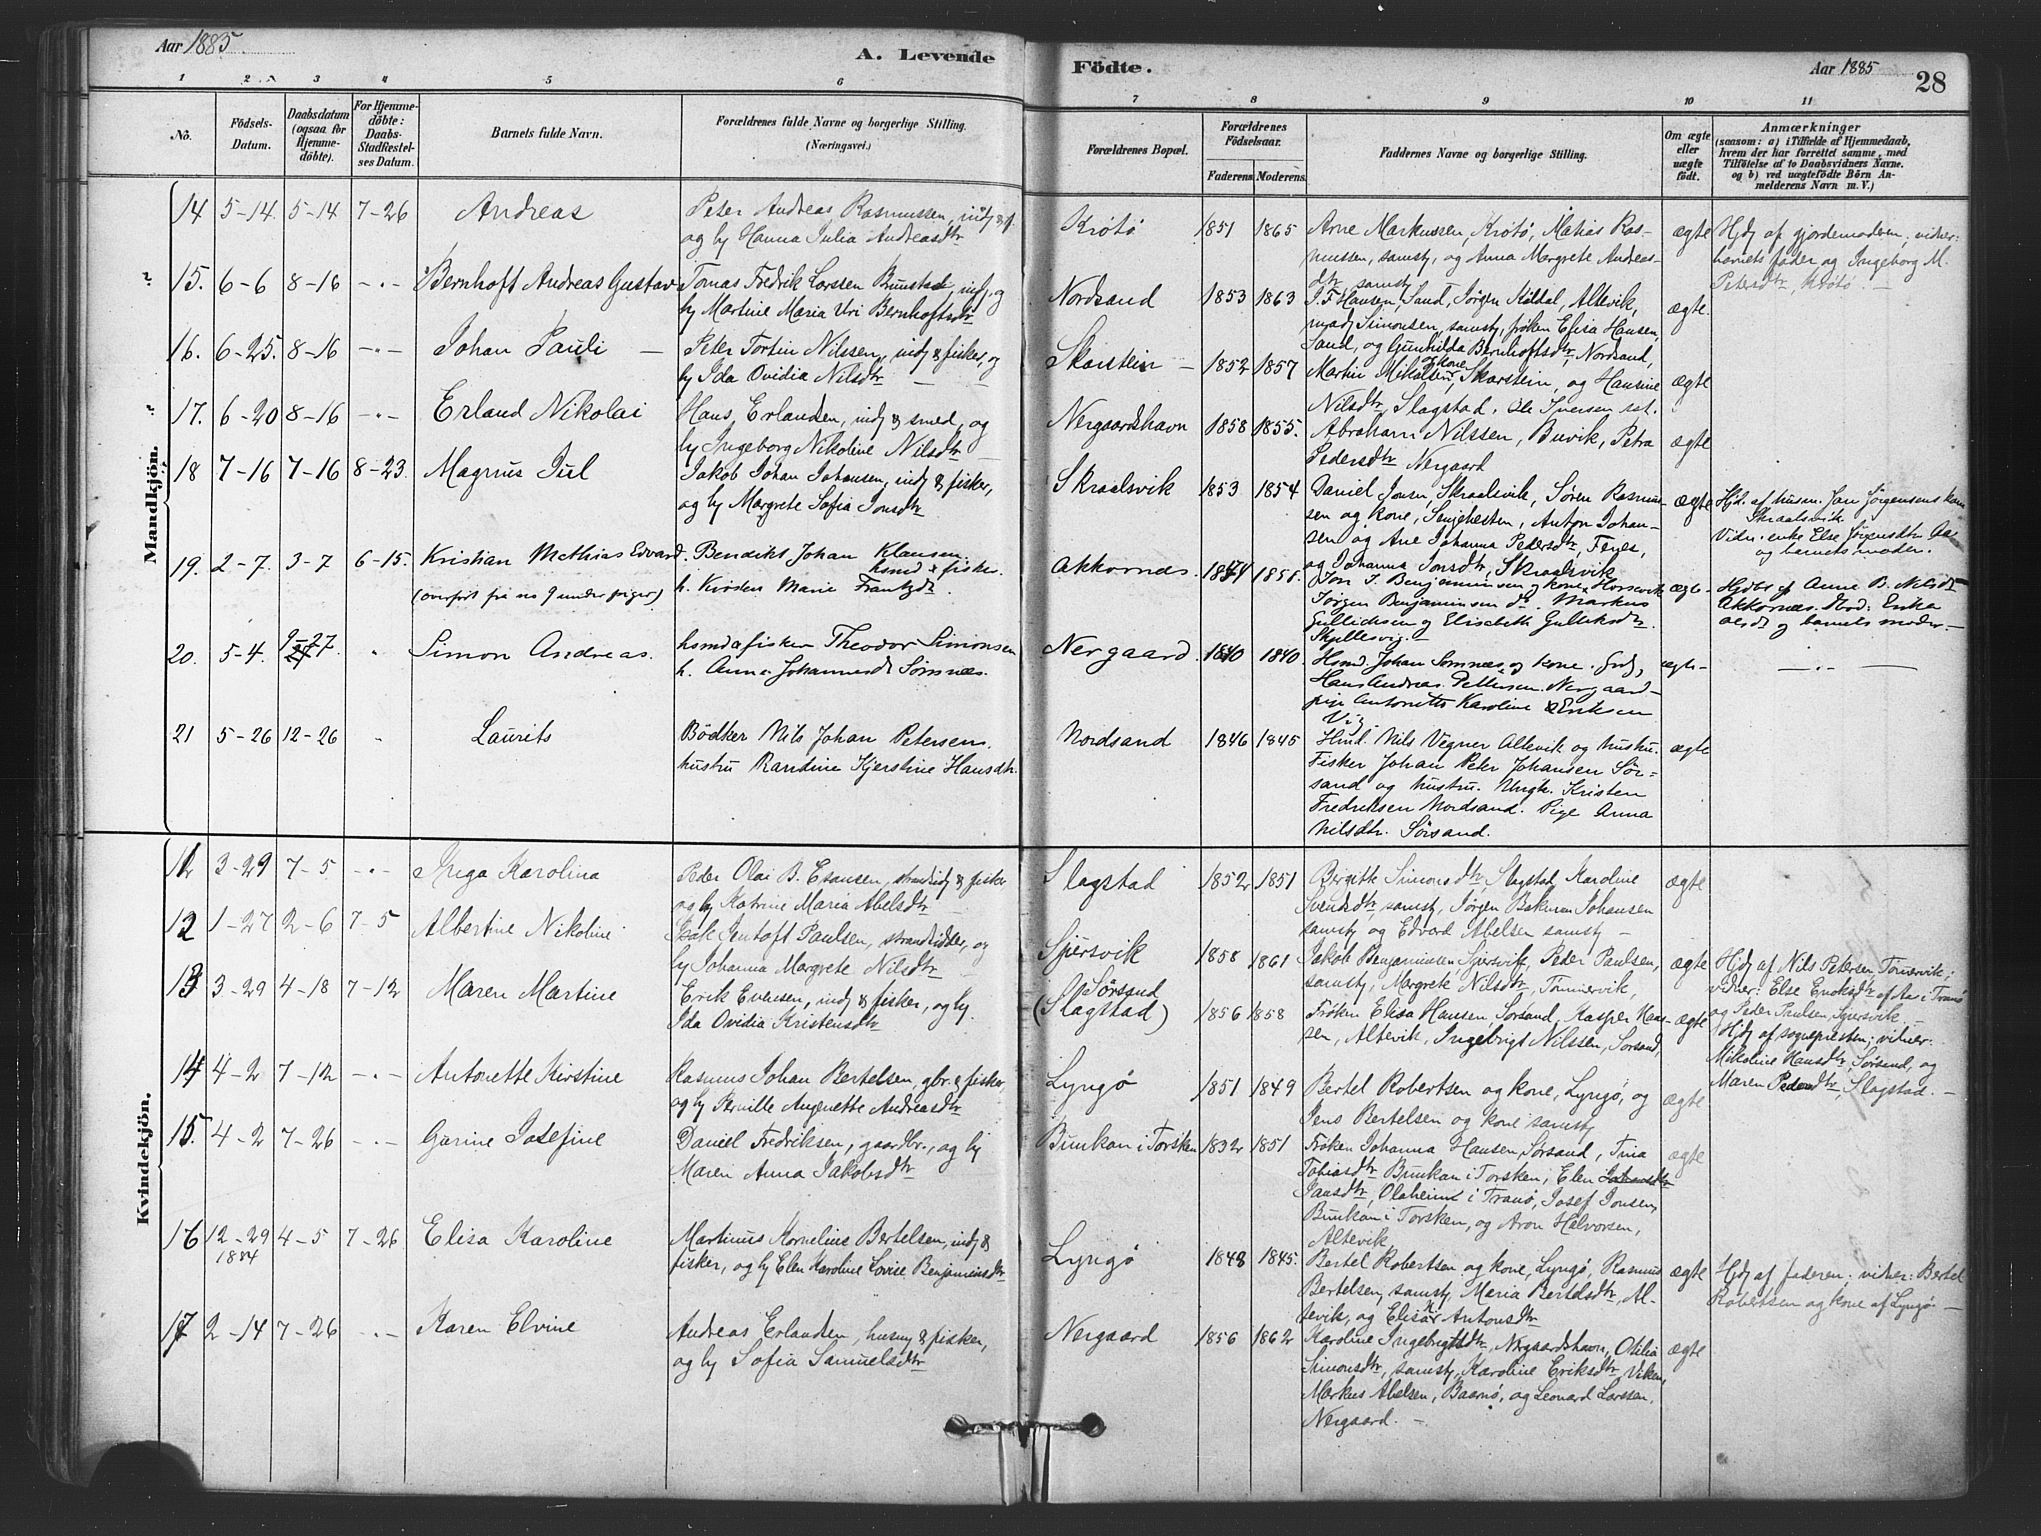 Aar 1885.
A. Levende
Födte.
Aar 1885
28
1 2 3 4 5 6 7 8 9 10 11
No.
Födsels-Datum.
Daabsdatum (ogsaa for Hjemmedöbte).
For Hjemmedöbte: Daabs-Stadfestelses Datum.
Barnets fulde Navn.
Forældrenes fulde Navne og borgerlige Stilling. (Næringsvei.)
Forældrenes Bopæl.
Forældrenes Födselsaar.
Faderens Moderens.
Faddernes Navne og borgerlige Stilling.
Om ægte eller uægte födt.
Anmærkninger
(saasom: a) i Tilfælde af Hjemmedaab,
hvem der har forrettet samme, med
Tilföielse af to Daabsvidners Navne.
og b) ved uægtefödte Börn An-
melderens Navn m. V.)
Mandkjön.
14 5-14 5-14 7-26 Andreas
Peter Andreas Rasmussen, indj & f.
og hj Hanna Julia Andreasdtr
Krötö 1851 1865
Arne Markussen, Krötö, Matias Ras-
mussen, samsty, og Anna Margrete Andreas-
dtr samsty
ægte
Hjdj af gjordemoderen; vidner:
barnets fader og Ingeborg M.
Petersdtr, Krötö. —
15. 6-6 8-16 -"- Bernhoft Andreas Gustav
Tomas Fredrik Larssen Buustad, indj. og
hj Martine Maria Uri Bernhoftsdtr
Nordsand 1853 1863
J. F. Hansen, Sand, Jörgen Koldal, Altevik,
madj Simonsen, samsty, fröken Elisa Hansen,
Sand, og Gunhilda Bernhoftsdtr, Nordsand,
ægte.
16. 6-25. 8-16 -"- Johan Pauli —
Peter Tortin Nilssen, indj & fisker, og
hj Ida Ovidia Nilsdtr —
Skarstein — 1852 1857
Martin Mikalsen, og kone Skarstein, og Hansine
Nilsdtr, Slagstad. Ole Iversen sst.
ægte
17. 6-20 8-16 -"- Erland Nikolai
Hans Erlandsen, indj & smed, og
hj Ingeborg Nikoline Nilsdtr
Nergaardshavn 1858 1855.
Abraham Nilssen, Buvik, Petra
Pedersdtr Nergaard
ægte
18 7-16 7-16 8-23. Magnus Jul
Jakob Johan Johansen, indj & fisker,
og hj Margrete Sofia Jonsdtr
Skraalsvik 1853 1854
Daniel Jonsen, Skraalsvik, Sören Rasmus-
sen og kone, Senjehesten, Anton Johan-
sen og Ane Johanna Pedersdtr, Fenes,
og Johanna Jonsdtr, Skraalsvik
ægte
Hjd. af husm. Jan Jörgensens kone
Skraalsvik
Vidn. enke Else Jörgensdtr Aa
og barnets moder.
19. 2-7. 3-7 6-15. Kristian Mathias Edvard.
(overfört fra no 9 under piger)
Bendikt Johan Klausen.
hsmd & fisker.
h. Kirsten Marie Frantzdtr.
Akkornæs. 1851.
Jon J. Benjaminsen og kone, Horsevik
Jörgen Benjaminsen do. Markus
Gulliksen og Elisabeth Gulliksdtr.
Skjellesvig. —
ægte-
Hjdbt af Anne B. Nilsdtr
Akkornæs. og barnets moder. —
20. 5-4. 9-27. " Simon Andreas.
hsmd & fisker Theodor Simonsen
h. Anna Johannesdt Sörnæs.
Nergaard. 1840 1840.
Hsmd. Johan Somnæs og kone.
Hans Andreas Pettersen. Nergaard—
pige Antonette Karoline Eriksen
Vig.
ægte-
— " —
21 5-26 12-26 " Laurits
Bödker Nils Johan Petersen.
hustru Randine Kjerstine Hansdtr.
Nordsand 1846 1845
Hmd. Nils Vegner Altevik og hustru.
Fisker Johan Peter Johansen Sör-
sand og hustru. Ungk. Kristen
Fredriksen Nordsand. Pige Anna
Nilsdtr. Sörsand.
ægte
Kvindekjön.
11 3-29 7-5 -"- Inga Karolina
Peder Olai B. Esausen, strandsidj & fisker
og hj Katrine Maria Abelsdtr —
Slagstad 1852 1851
Bergitte Simonsdtr, Slagstad, Karoline
Svendsdtr, samsty, Jörgen Johansen
samsty og Edvard Abelsen samsty —
ægte
12 1-27 2-6 7-5 Albertine Nikoline
Isak Jentoft Paulsen, strandsidder, og
hj Johanna Margrete Nilsdtr
Sjursvik 1858 1861
Jakob Benjaminsen Sjursvik, Peder Paulsen,
samsty, Margrete Nilsdtr, Tönnervik,
ægte
Hjdj af Nils Petersen, Tönnervik;
vidner: Else Enoksdtr af Aa i Tranö
og Peder Paulsen, Sjursvik. —
13 3-29 4-18 7-12 Maren Martine
Erik Evensen, indj & fisker, og hj.
Ida Ovidia Kristensdtr
Sörsand
(Slagstad) 1856 1858
Fröken Elisa Hansen, Sörsand, Kasper Han-
sen, Altevik, Ingebrigt Nilssen, Sörsand,
ægte
Hjdj af sognepresten; vidner:
Nikoline Hansdtr Sörsand, og
Maren Pedersdtr, Slagstad. —
14 4-2 7-12 -"- Antonette Kirstine
Rasmus Johan Bertelsen, gbr. & fisker,
og hj Pernille Anjenette Andreasdtr
Lyngö 1851 1849
Bertel Robertsen og kone, Lyngö, og
Jens Bertelsen og kone samsty
ægte
15. 4-2 7-26 -"- Gurine Josefine
Daniel Fredriksen, gaardbr., og hj
Maren Anna Jakobsdtr
Bunkan i Torsken 1832 1851
Fröken Johanna Hansen, Sörsand, Tina
Tobiasdtr Bunkan i Torsken, Elen
Jansdtr, Olaheim i Tranö, Josef Jonsen,
Bunkan i Torsken, og Aron Halvorsen,
Altevik
ægte
16 12-29 1884 4-5 7-26 Elisa Karoline
Martinus Kornelius Bertelsen, indj &
fisker, og hj Elen Karoline Lovise Benjaminsdtr
Lyngö 1848 1845.
Bertel Robertsen og kone, Lyngö, Rasmus
Bertelsen, samsty, Maria Bertelsdtr, Al-
tevik, og Elisa Antonsdtr
ægte
Hjdj af faderen; vidner: Bertel
Robertsen og kone af Lyngö —
17 2-14 7-26 -"- Karen Elvine
Andreas Erlandsen, husmj & fisker,
og hj Sofia Samuelsdtr
Nergaard 1856 1862
Karoline Ingebrigtsdtr, Nergaardshavn, Otilia
Simonsdtr, samsty, Karoline Eriksdtr, Viken,
Markus Abelsen, Baanö, og Leonard Larssen,
Nergaard. —
ægte